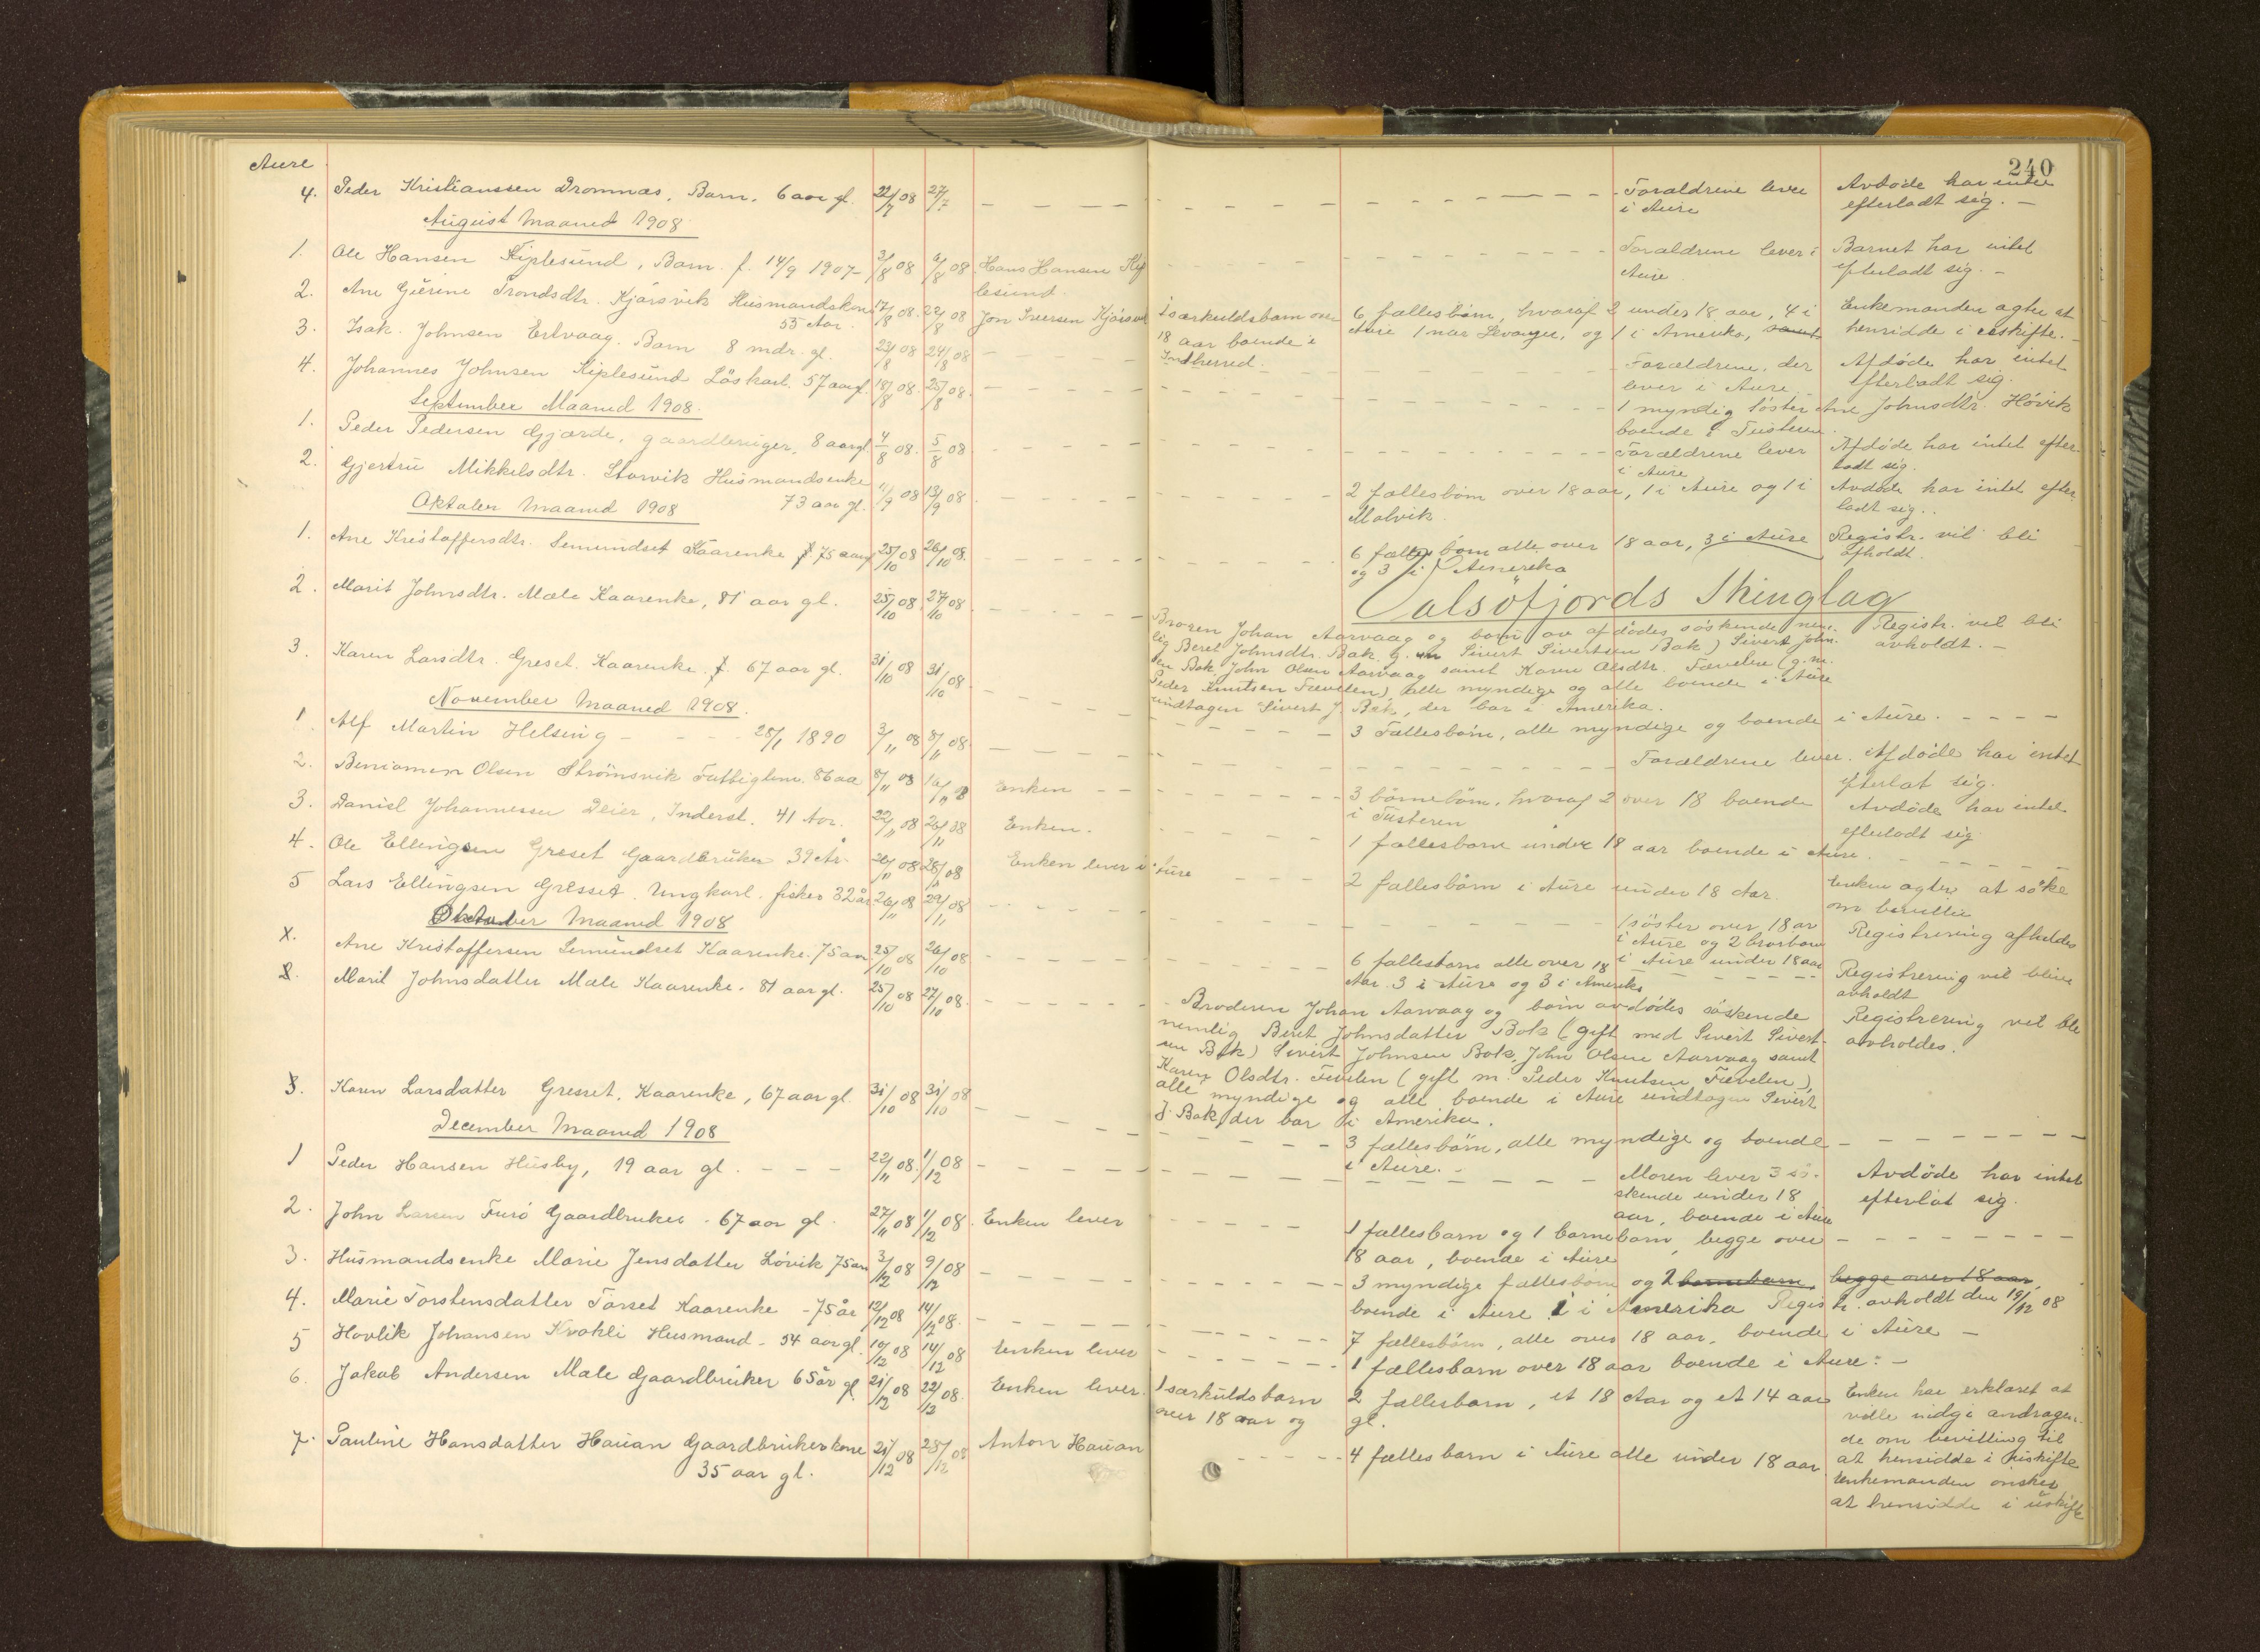 240
Aure
4. Peder Kristianssen Dromnæs, Barn, 6 aar gl. 22/7 08 27/7 Forældrene lever Avdøde har intet
i Aure efterladt sig. –
August Maaned 1908
1. Ole Hansen Kiplesund, Barn f. 14/9 1907 – 3/8 08 6/8 08 Hans Hansen Kip Forældrene lever i Barnet har intet
lesund. Aure efterladt sig. –
2. Ane Gurine Trondsdtr. Kjørsvik Husmandskone 17/8 08. 22/8 08 Jon Iversen Kjørsvik 1 særkuldsbarn over 6 fællesbørn, hvoraf 2 under 18 aar, 4 i Enkemanden agter at
55 Aar. 18 aar boende i Aure 1 nær Levanger, og 1 i Amerika, samt hensidde i uskifte. –
Indherred.
3. Isak Johnsen Ertvaag. Barn 8 mdr. gl. 23/8 08 24/8 08 – Forældrene, der Afdøde har intet
lever i Aure efterladt sig.
4. Johannes Johnsen Kiplesund Løskarl. 57 aar gl. 18/8 08. 25/8 08. 1 myndig søster Ane Johnsdtr. Høvik
boende i Tusteren.
September Maaned 1908.
1. Peder Pedersen Gjærde, gaardbruger, 8 aar gl. 4/8 08. 5/8 08 Forældrene lever Afdøde har intet efter
i Aure ladt sig.
2. Gjertru Mikkelsdtr. Storvik Husmandsenke 11/9 08 13/9 08 2 fællesbørn over 18 aar, 1 i Aure og 1 i Avdøde har intet efter
73 aar gl. Malvik. ladt sig..
Oktober Maaned 1908
1. Ane Kristoffersdtr. Semundset Kaarenke 75 aar gl 25/10 08 26/10 08. 6 fællesbørn alle over 18 aar, 3 i Aure Registr. vil bli
og 3 i Amerika afholdt.
Valsøfjords Thinglag
2. Marit Johnsdtr. Mæle Kaarenke, 81 aar gl. 25/10 08 27/10 08 Broren Johan Aarvaag og børn av afdødes søskende nem- Registr. vil bli
lig Beret Johnsdtr. Bak g. m Sivert Sivertsen Bak) Sivert John- avholdt. –
sen Bak, John Olsen Aarvaag samt Karen Olsdtr. Fævelen (g. m.
Peder Knutsen Fævelen), alle myndige og alle boende i Aure
undtagen Sivert J. Bak, der bor i Amerika.
3. Karen Larsdtr. Gresset. Kaarenke, 67 aar gl. 31/10 08 31/10 08. 3 Fællesbørn, alle myndige og boende i Aure.
November Maaned 1908.
1 Alf Martin Helsing – 28/1 1890 3/11 08 8/11 08. Forældrene lever. Afdøde har intet
efterlat sig.
2. Beniamin Olsen Strømsvik Fattiglem. 86 aa 8/11 08 16/11 8 Enken 3 børnebørn, hvoraf 2 over 18 boende Avdøde har intet
i Tusteren efterladt sig
3. Daniel Johannessen Deier, Inderst. 41 Aar. 22/11 08 26/11 08 Enken. 1 fællesbarn under 18 aar boende i Aure.
4. Ole Ellingsen Greset Gaardbruker 39 År. 26/11 08 28/11 08 Enken lever i Aure 2 fællesbørn i Aure under 18 Aar. Enken agter at søke
om bevilling
5 Lars Ellingsen Gresset. Ungkarl. fisker 32 år 26/11 08 29/11 08 1 søster over 18 ar Registrering afholdes
i Aure og 2 brorbarn
i Aure under 18 aar
Oktober Maaned 1908
X. Ane Kristoffersen Semundset Kaarenke. 75 aar 25/10 08 26/10 08 6 fællesbørn alle over 18 Registrering vil blive
Aar. 3 i Aure og 3 i Amerika avholdt
2. Marit Johnsdatter Mæle Kaarenke. 81 aar gl. 25/10 08 27/10 08. Broderen Johan Aarvaag og børn avdødes søskende Registrering vil bli
nemlig Beret Johnsdatter Bak (gift med Sivert Sivert- avholdes.
sen Bak) Sivert Johnsen Bak, John Olsen Aarvaag samt
Karen Olsdtr. Fævelen (gift m. Peder Knutsen Fævelen),
alle myndige og alle boende i Aure undtagen Sivert
J. Bak der bor i Amerika.
3. Karen Larsdatter Gresset, Kaarenke, 67 aar gl. 31/10 08 31/10 08 3 fællesbørn, alle myndige og boende
i Aure. –
December Maaned 1908
1 Peder Hansen Husby, 19 aar gl. 22/11 08. 1/12 08 Moren lever 3 sø- Avdøde har intet
skende under 18 efterlat sig.
aar, boende i Aure
2. John Larsen Furø Gaardbruker. 67 aar gl. 27/11 08 1/12 08. Enken lever 1 fællesbarn og 1 barnebarn, begge over
18 aar, boende i Aure
3. Husmandsenke Marie Jensdatter Løvik 75 aar 3/12 08 9/12 08 3 myndige fællesbørn og 2 barnebarn, begge over 18 aar,
boende i Aure 1 i Amerika Registr. avholdt den 19/12 08
4. Marie Torstensdatter Torset Kaarenke – 75 år 12/12 08 14/12 08. 7 fællesbørn, alle over 18 aar, boende i Aure –
5 Hovlik Johansen Krokli Husmand – 54 aar gl. 10/12 08 14/12 08 Enken lever 1 fællesbarn over 18 aar boende i Aure: –
6. Jakob Andersen Mæle Gaardbruker 65 år gl. 21/12 08 22/12 08. Enken lever. 1 særkuldsbarn 2 fællesbarn, et 18 Aar og et 14 aar Enken har erklæret at
over 18 aar og gl. ville indgi andragen-
de om bevilling til
at hensidde i uskifte
7. Pauline Hansdatter Hauan Gaardbrukerkone 21/12 08 28/12 08 Anton Hauan 4 fællesbarn i Aure alle under 18 aar Enkemanden ønsker
35 aar gl. at hensidde i uskifte